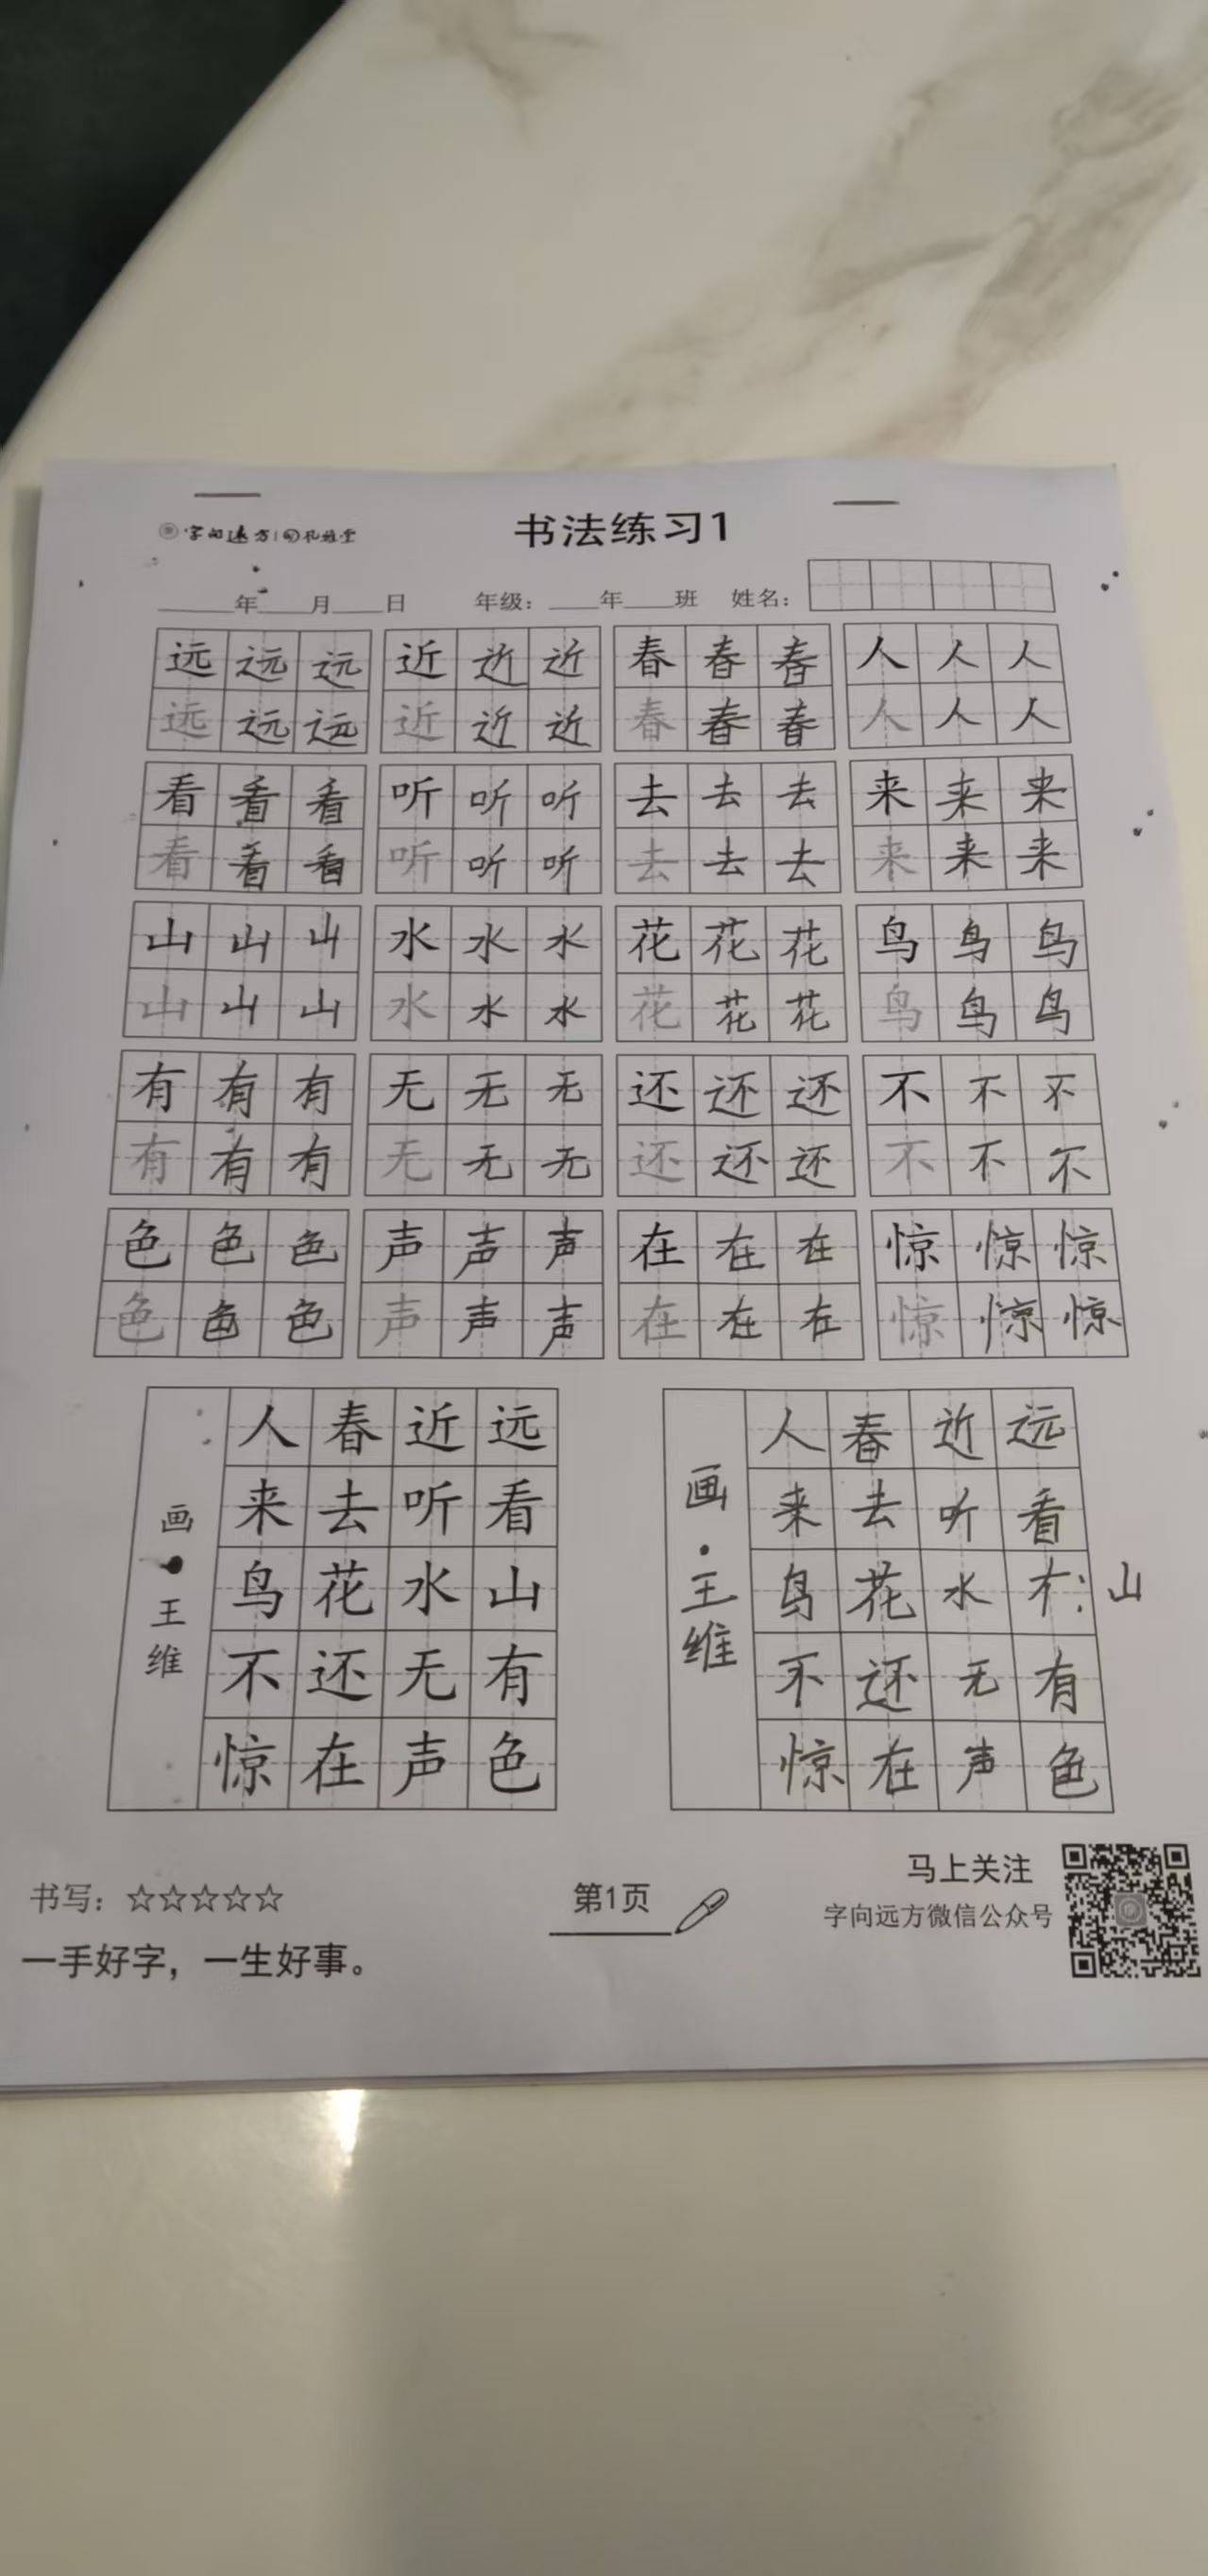 字向远方
书法练习1
年 月 日 年级： 年 班 姓名：
远 远 远 近 近 近 春 春 春 人 人 人
远 远 远 近 近 近 春 春 春 人 人 人
看 看 看 听 听 听 去 去 去 来 来 来
看 看 看 听 听 听 去 去 去 来 来 来
山 山 山 水 水 水 花 花 花 鸟 鸟 鸟
山 山 山 水 水 水 花 花 花 鸟 鸟 鸟
有 有 有 无 无 无 还 还 还 不 不 不
有 有 有 无 无 无 还 还 还 不 不 不
色 色 色 声 声 声 在 在 在 惊 惊 惊
色 色 色 声 声 声 在 在 在 惊 惊 惊
远看山有色
近听水无声
春去花还在
人来鸟不惊
画·王维
山
远看 有色
近听水无声
春去花还在
人来鸟不惊
画·王维
书写：☆☆☆☆☆
一手好字，一生好事。
第1页
马上关注
字向远方微信公众号